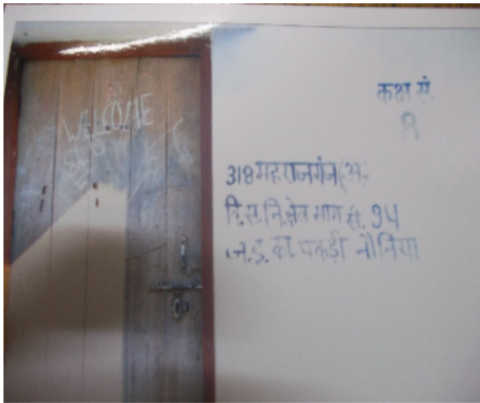 WELCOME
कक्ष सं
१
318 महराजगंज (अ.
वि.स.नि.क्षेत्र भाग सं. 94
पकड़ी नौनिया